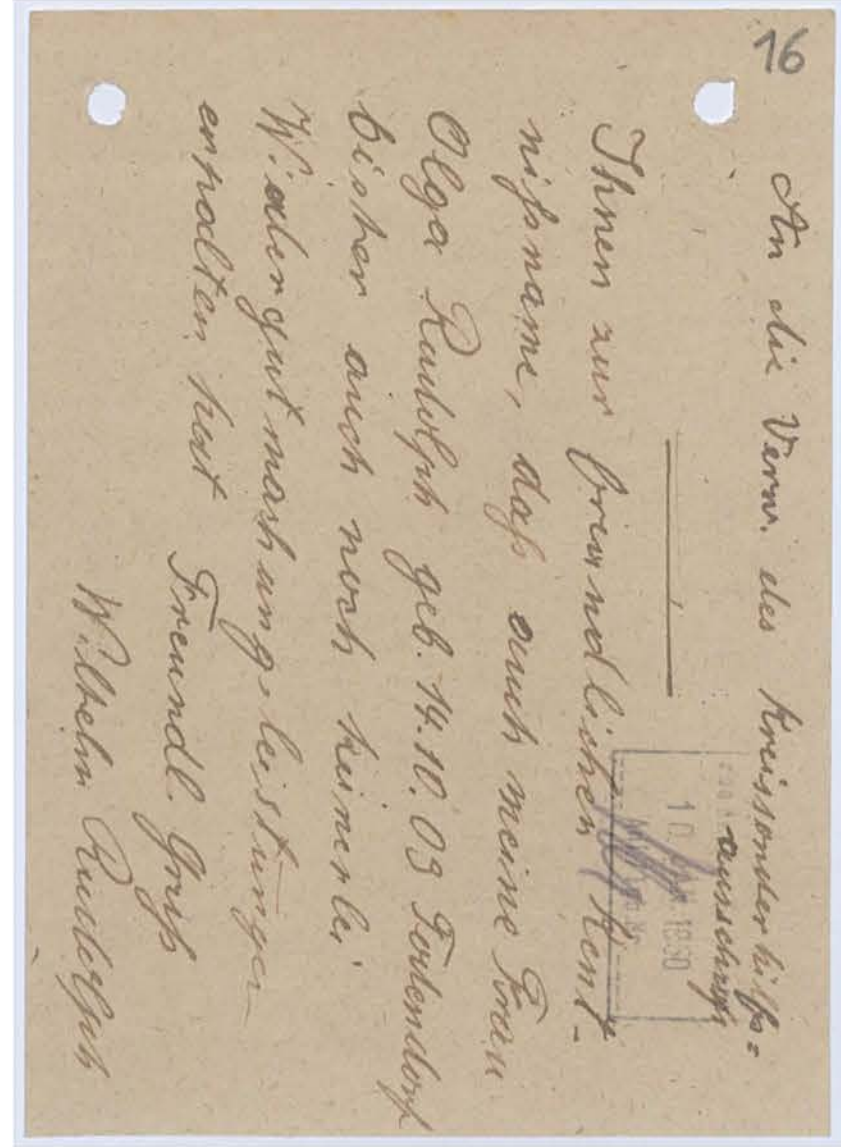 16
An die Verw. des Kreissonderhilfs=
ausschuß
10. 1950
Ihnen zur freundlichen Kent-
nißname, daß auch meine Frau
Olga Rudolph geb. 14.10.03 Todendorf
bisher auch noch keinerlei
Wiedergutmachungsleistungen
erhalten hat
Freundl. Gruß
Wilhelm Rudolph